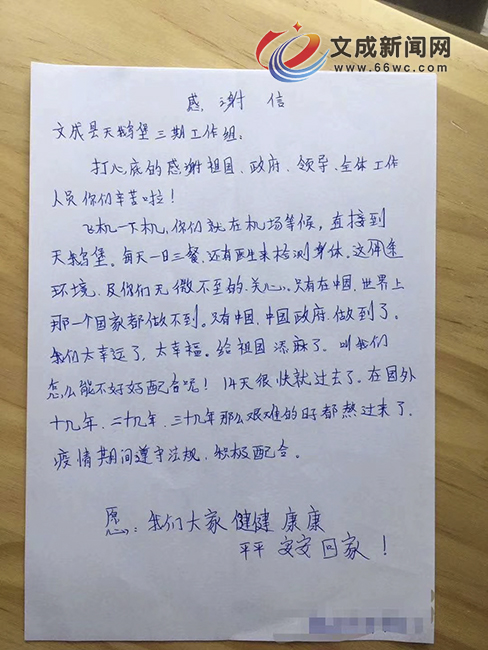 文成新闻网
www.66wc.com
感 谢 信
文成县天鹅堡三期工作组:
打心底的感谢祖国、政府、领导、全体工作
人员你们辛苦啦!
飞机一下机,你们就在机场等候,直接到
天鹅堡。每天一日三餐、还有医生来检测身体。这
环境、及你们无微不至的关心。只有在中国、世界上
那一个国家都做不到。只有中国、中国政府、做到了。
我们太幸运了,太幸福。给祖国添麻了。叫我们
怎么能不好好配合呢!14天很快就过去了。在国外
十几年、二十几年、三十几年那么艰难的日都熬过来了。
疫情期间遵守法规、积极配合。
愿:我们大家健健康康
平平安安回家!